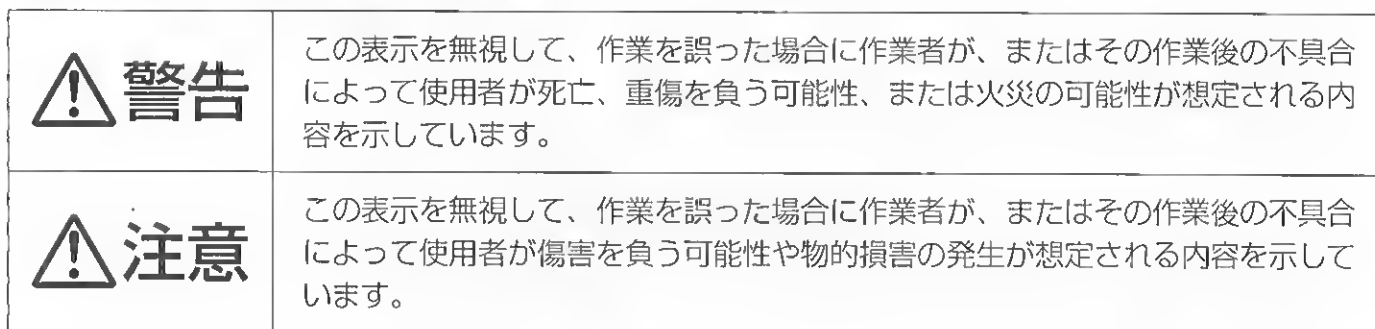 警告
この表示を無視して、作業を誤った場合に作業者が、またはその作業後の不具合
によって使用者が死亡、重傷を負う可能性、または火災の可能性が想定される内
容を示しています。
注意
この表示を無視して、作業を誤った場合に作業者が、またはその作業後の不具合
によって使用者が傷害を負う可能性や物的損害の発生が想定される内容を示して
います。